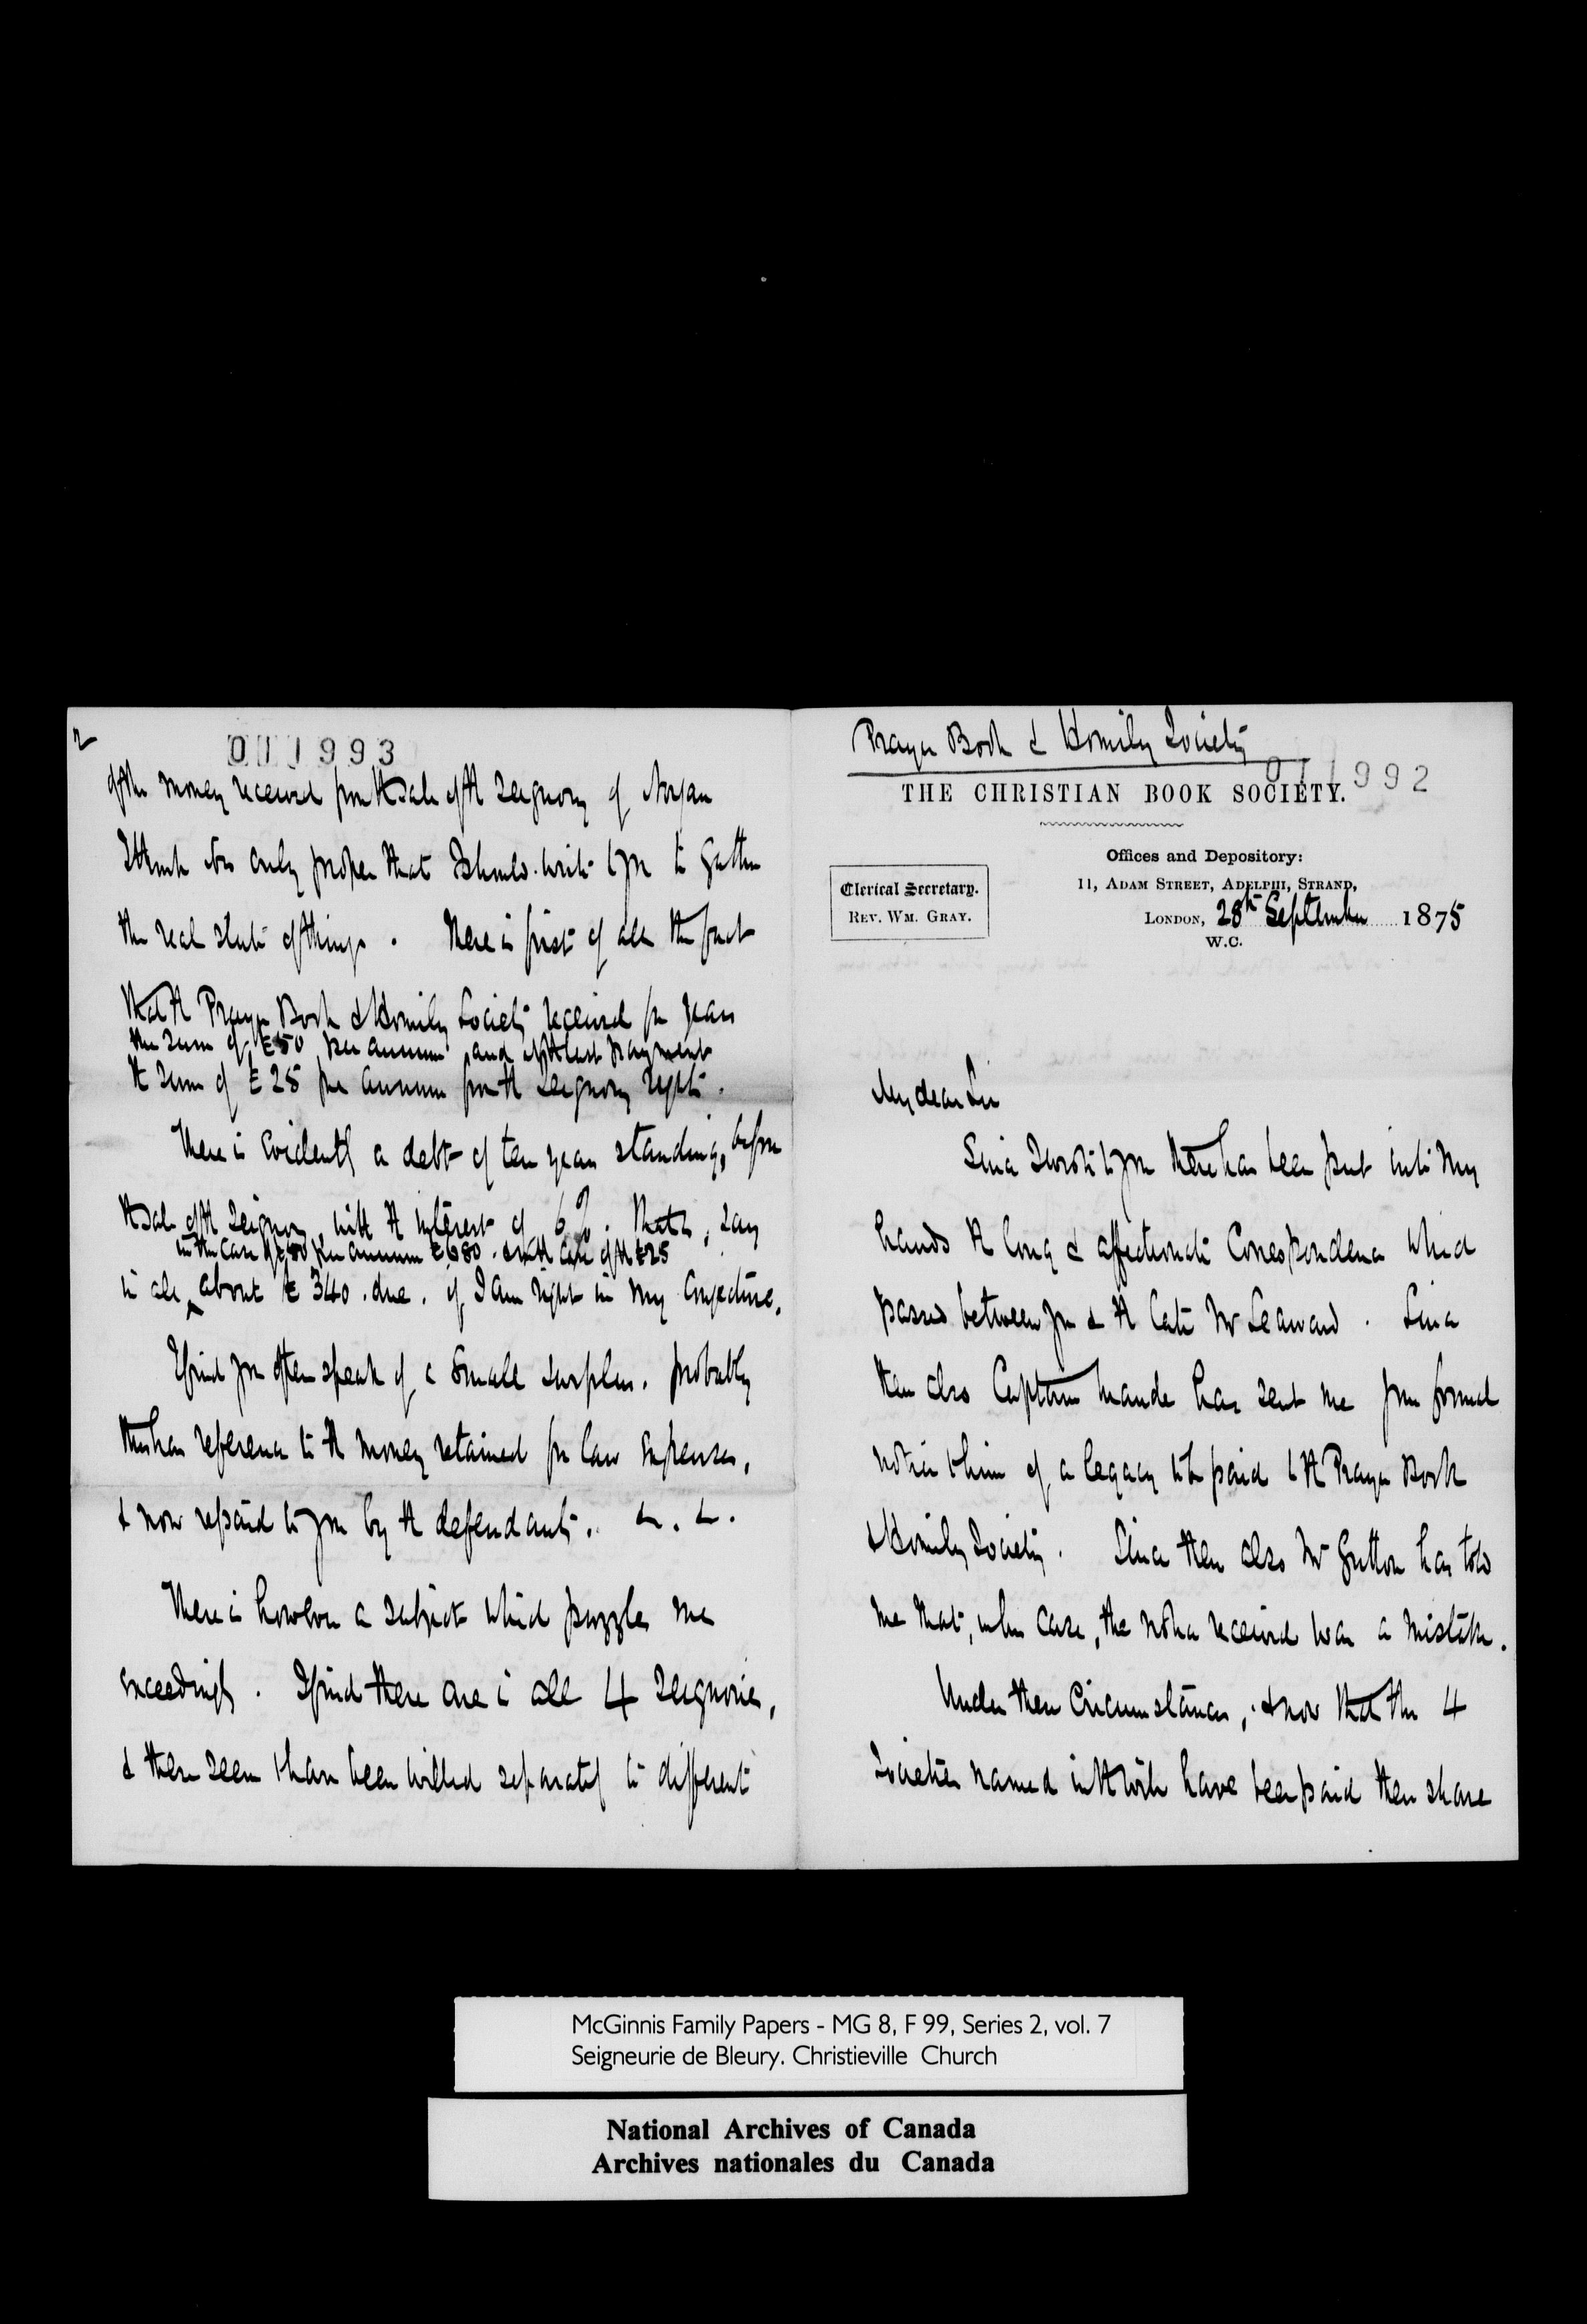 Prayer Book & Homily Society
011992
THE CHRISTIAN BOOK SOCIETY.
Offices and Depository:
11, ADAM STREET, ADELPHI, STRAND,
Clerical Secretary.
REV. WM. GRAY.
LONDON, 28th September 1875
W.C.
My dear Sir
Since I wrote to you there has been put into my
hands the long & affectionate Correspondence which
passed between you & the late Mr Seaward. Since
then also Captain Maude has sent me your formal
notice to him of a legacy to be paid to the Prayer Book
& Homily Society. Since then also Mr Gutton has told
me that, in this case, the notice received was a mistake.
Under these Circumstances, & now that the 4
Societies named in the Will have been paid their share
2
011993
of the money received from the sale of the Seignory of Noyan
I think it is only proper that I should write to you to gather
the real state of things. There is first of all the fact
that the Prayer Book & Homily Society received for years
the sum of £50 per annum and at the last payment
the sum of £25 per annum from the Seignory rights.
There is evidently a debt of ten years standing, before
the sale of the Seignory, with the interest of 6%. That is, say
in the case of £50 per annum £680. & in the case of the £25
in all about £340. due. if I am right in my Conjecture.
I find you often speak of a small surplus. probably
this has reference to the money retained for law expenses,
& now repaid to you by the defendants. &. &.
There is however a subject which puzzles me
exceedingly. I find there are in all 4 Seignories,
& these seem to have been willed separately to different
McGinnis Family Papers - MG 8, F 99, Series 2, vol. 7
Seigneurie de Bleury. Christieville Church
National Archives of Canada
Archives nationales du Canada